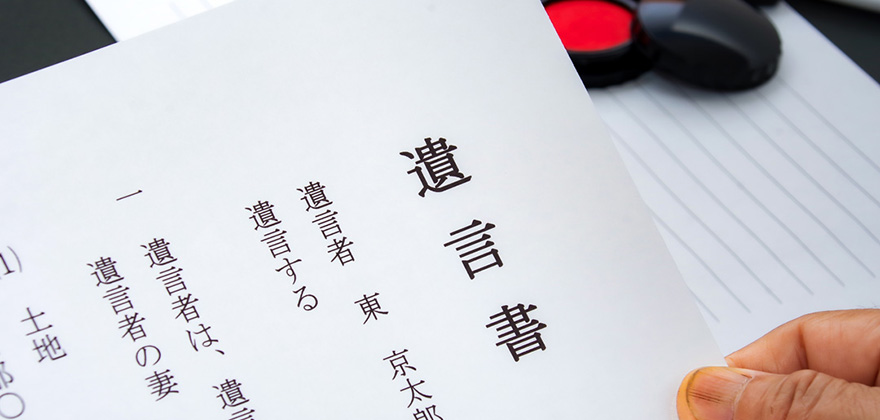 遺言書
遺言者　東　京太郎
遺言する
一　遺言者は、遺言
遺言者の妻
(1)　土地